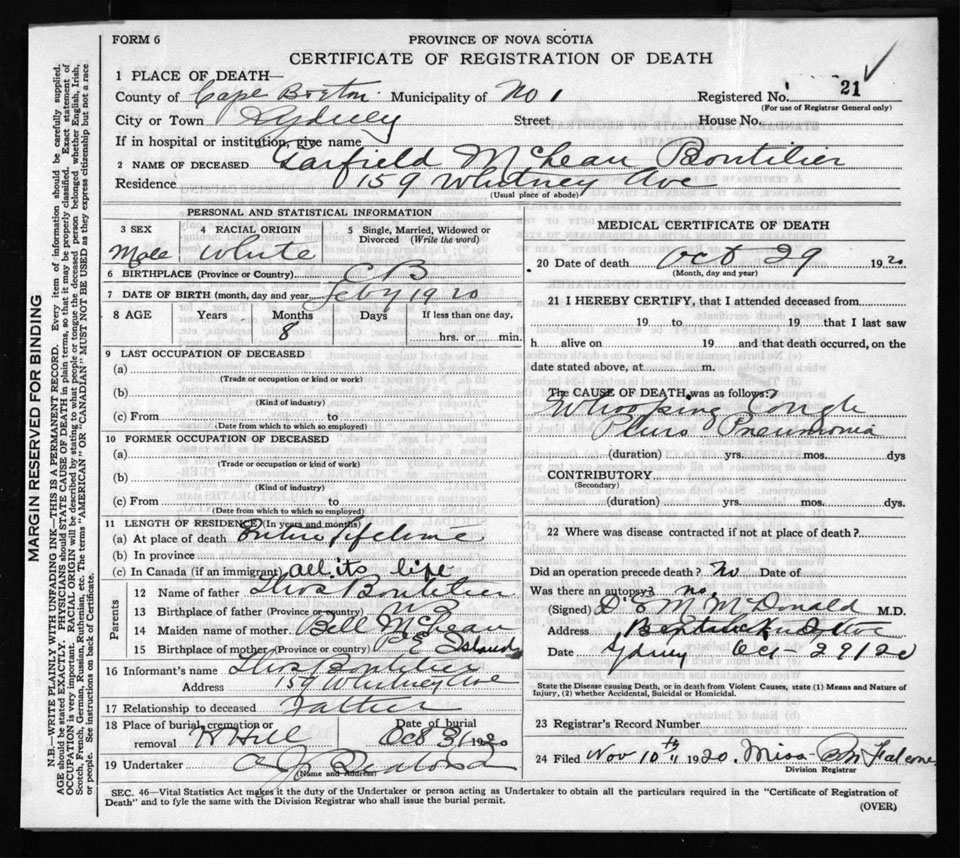 FORM 6
PROVINCE OF NOVA SCOTIA
CERTIFICATE OF REGISTRATION OF DEATH
MARGIN RESERVED FOR BINDING
N.B.—WRITE PLAINLY WITH UNFADING INK—THIS IS A PERMANENT RECORD. Every item of information should be carefully supplied.
AGE should be stated EXACTLY. PHYSICIANS should STATE CAUSE OF DEATH in plain terms, so that it may be properly classified. Exact statement of
OCCUPATION is very important. RACIAL ORIGIN will be described by stating to what people or tongue the deceased person belonged whether English, Irish,
Scotch, French, German, Russian, Ruthenian, etc. The terms "AMERICAN" OR "CANADIAN" MUST NOT BE USED as they express citizenship but not a race
or people. See instructions on back of Certificate.
1 PLACE OF DEATH—
County of Cape Breton Municipality of No 1 Registered No. 21
(For use of Registrar General only)
City or Town Sydney Street House No.
If in hospital or institution, give name
2 NAME OF DECEASED Garfield McLean Boutilier
Residence 159 Whitney Ave
(Usual place of abode)
PERSONAL AND STATISTICAL INFORMATION
3 SEX 4 RACIAL ORIGIN 5 Single, Married, Widowed or
Divorced (Write the word)
Male White
6 BIRTHPLACE (Province or Country) C B
7 DATE OF BIRTH (month, day and year) Feby 1920
8 AGE Years Months Days If less than one day,
8 hrs. or min.
9 LAST OCCUPATION OF DECEASED
(a)
(Trade or occupation or kind or work)
(b)
(Kind of industry)
(c) From to
(Date from which to which so employed)
10 FORMER OCCUPATION OF DECEASED
(a)
(Trade or occupation or kind of work)
(b)
(Kind of industry)
(c) From to
(Date from which to which so employed)
11 LENGTH OF RESIDENCE (In years and months)
(a) At place of death Entire lifetime
(b) In province
(c) In Canada (if an immigrant) all its life
Parents
12 Name of father Thos Boutilier
13 Birthplace of father (Province or country)
14 Maiden name of mother Bell McLean
15 Birthplace of mother (Province or country) P E Island
16 Informant's name Thos Boutilier
Address 159 Whitney Ave
17 Relationship to deceased Father
18 Place of burial, cremation or Date of burial
removal Hill Oct 31 1920
19 Undertaker A J
(Name and Address)
MEDICAL CERTIFICATE OF DEATH
20 Date of death Oct 29 1920
(Month, day and year)
21 I HEREBY CERTIFY, that I attended deceased from
19 to 19 that I last saw
h alive on 19 and that death occurred, on the
date stated above, at m.
The CAUSE OF DEATH was as follows:
Whooping Cough
Pleuro Pneumonia
(duration) yrs. mos. dys
CONTRIBUTORY
(Secondary)
(duration) yrs. mos. dys.
22 Where was disease contracted if not at place of death?
Did an operation precede death? No Date of
Was there an autopsy? no
(Signed) D. E M McDonald M.D.
Address
Date Sydney Oct - 29/20
State the Disease causing Death, or in death from Violent Causes, state (1) Means and Nature of
Injury, (2) whether Accidental, Suicidal or Homicidal.
23 Registrar's Record Number
24 Filed Nov 10th 1920. Miss
Division Registrar
SEC. 46—Vital Statistics Act makes it the duty of the Undertaker or person acting as Undertaker to obtain all the particulars required in the "Certificate of Registration of
Death" and to fyle the same with the Division Registrar who shall issue the burial permit.
(OVER)